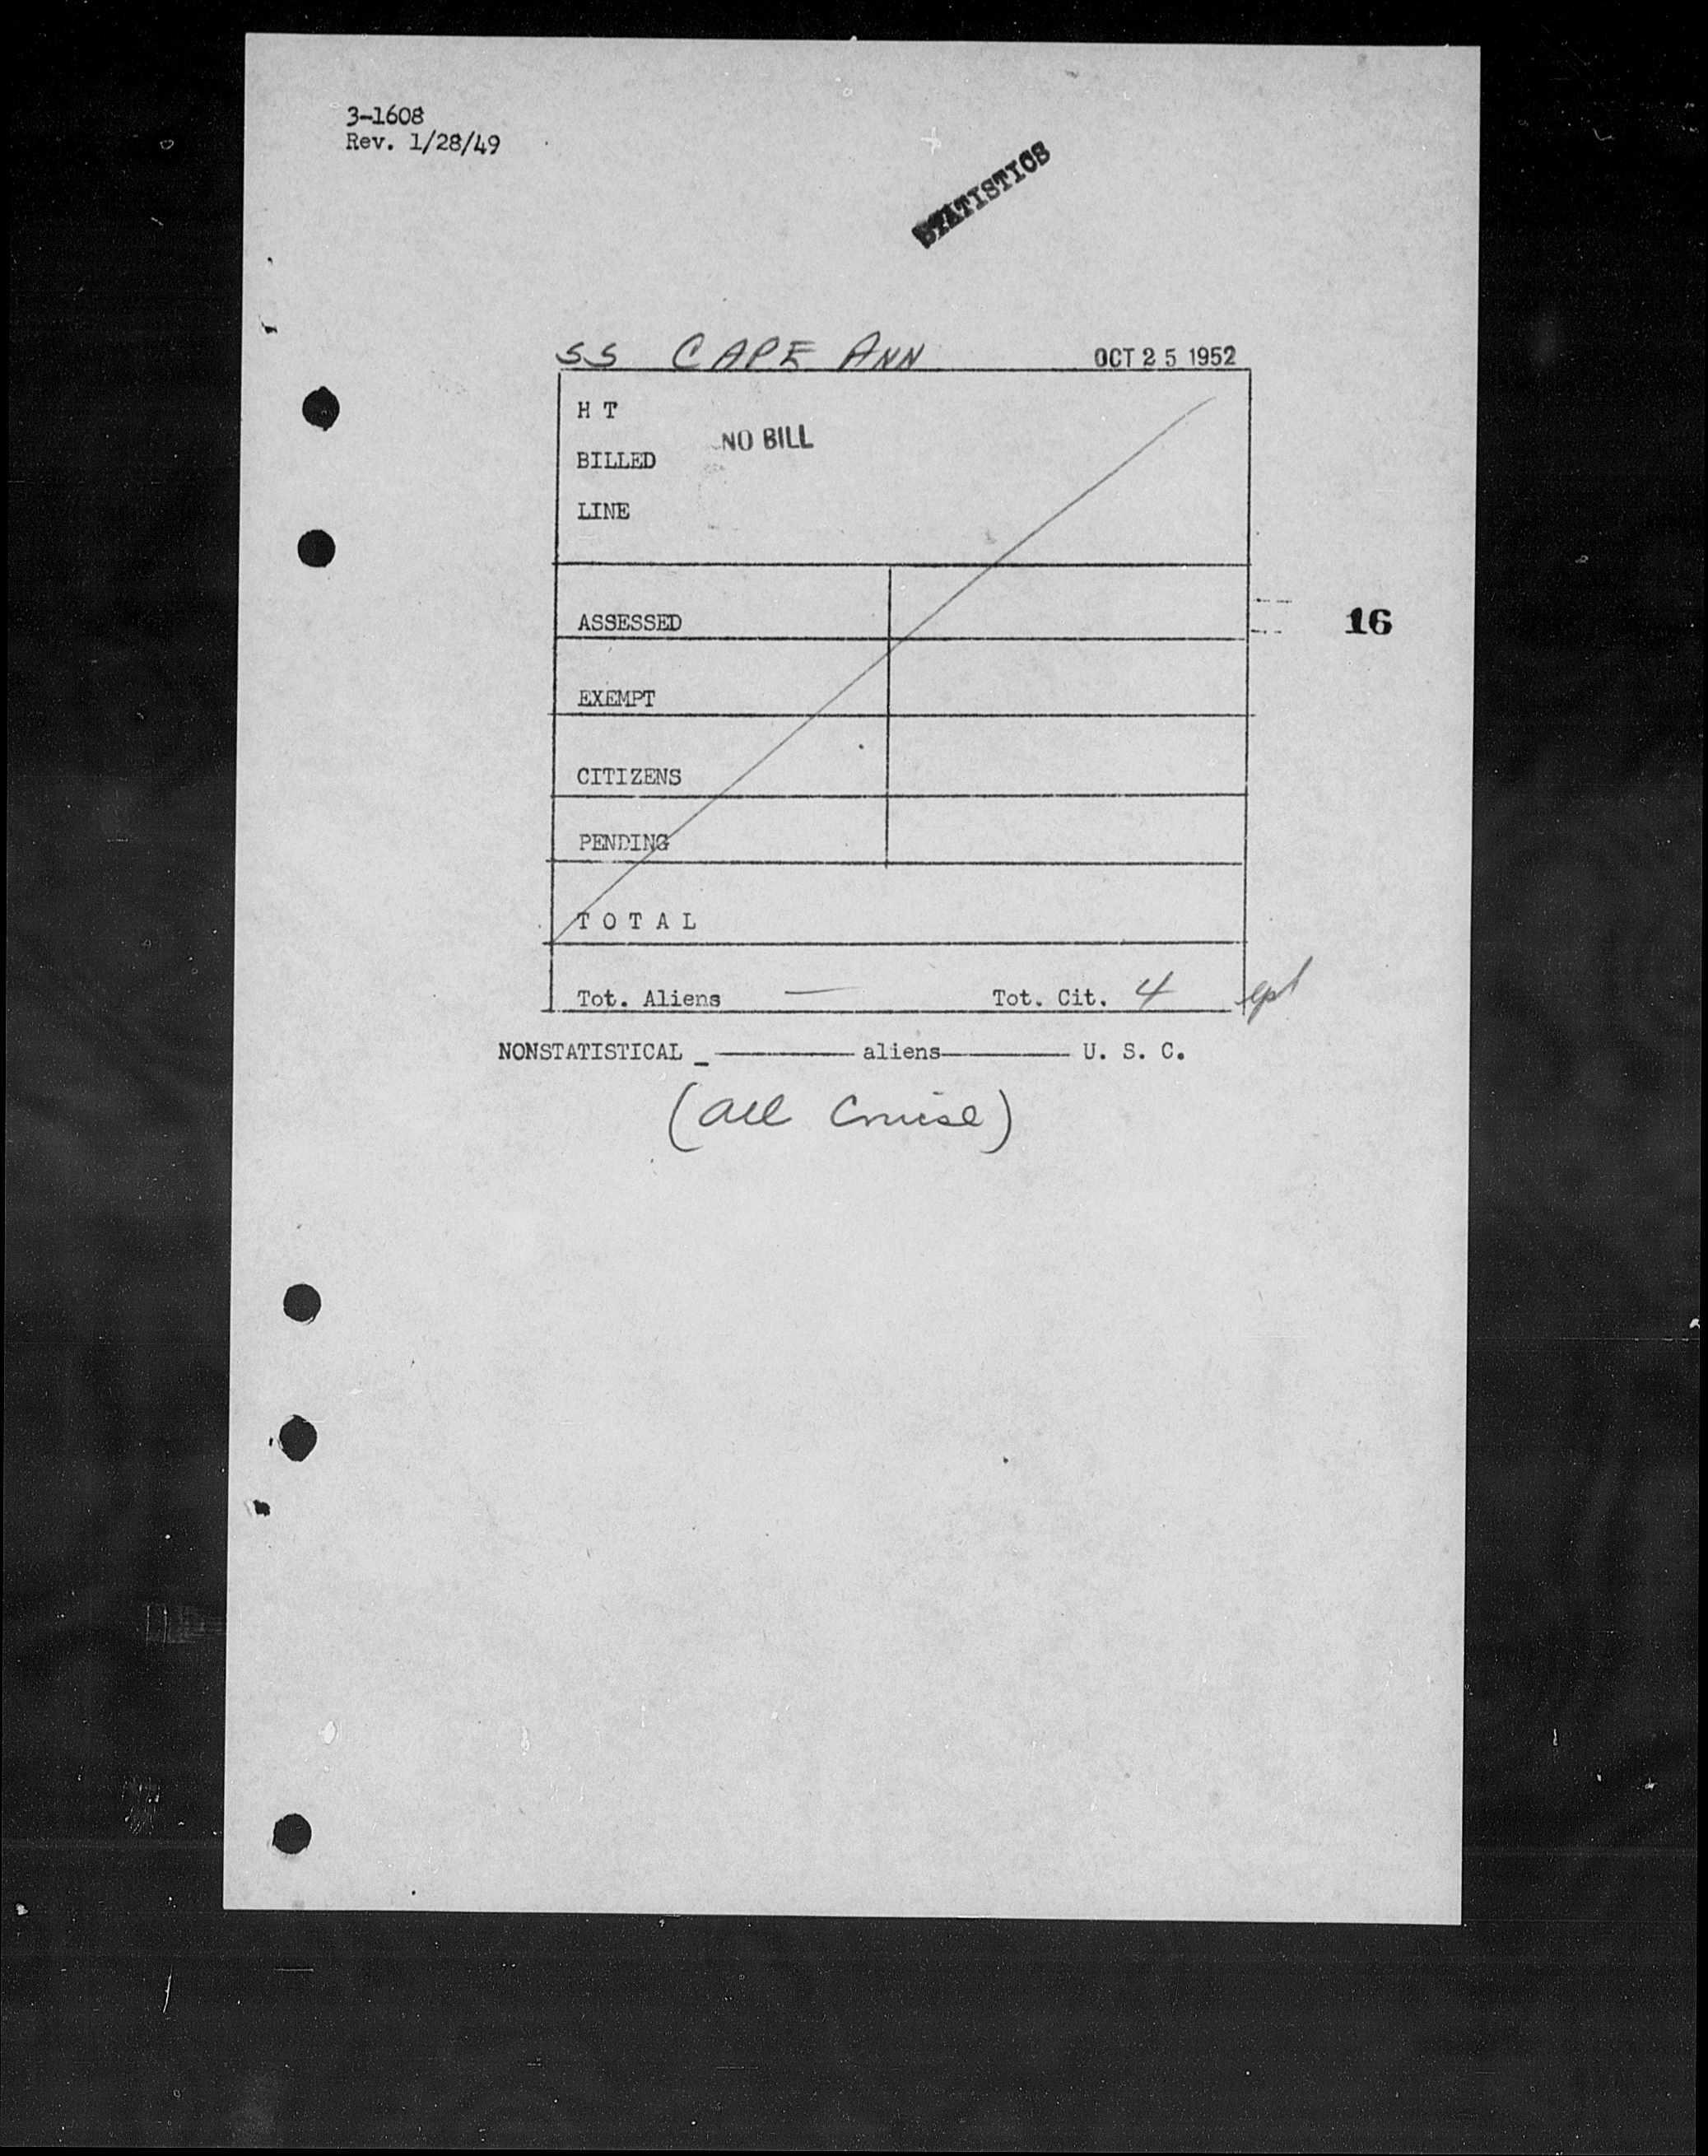 3-1608
Rev. 1/28/49
STATISTICS
SS CAPE ANN OCT 25 1952
H T
NO BILL
BILLED
LINE
ASSESSED
16
EXEMPT
CITIZENS
PENDING
T O T A L
Tot. Aliens — Tot. Cit. 4
NONSTATISTICAL _ ——— aliens——— U. S. C.
(all Cruise)